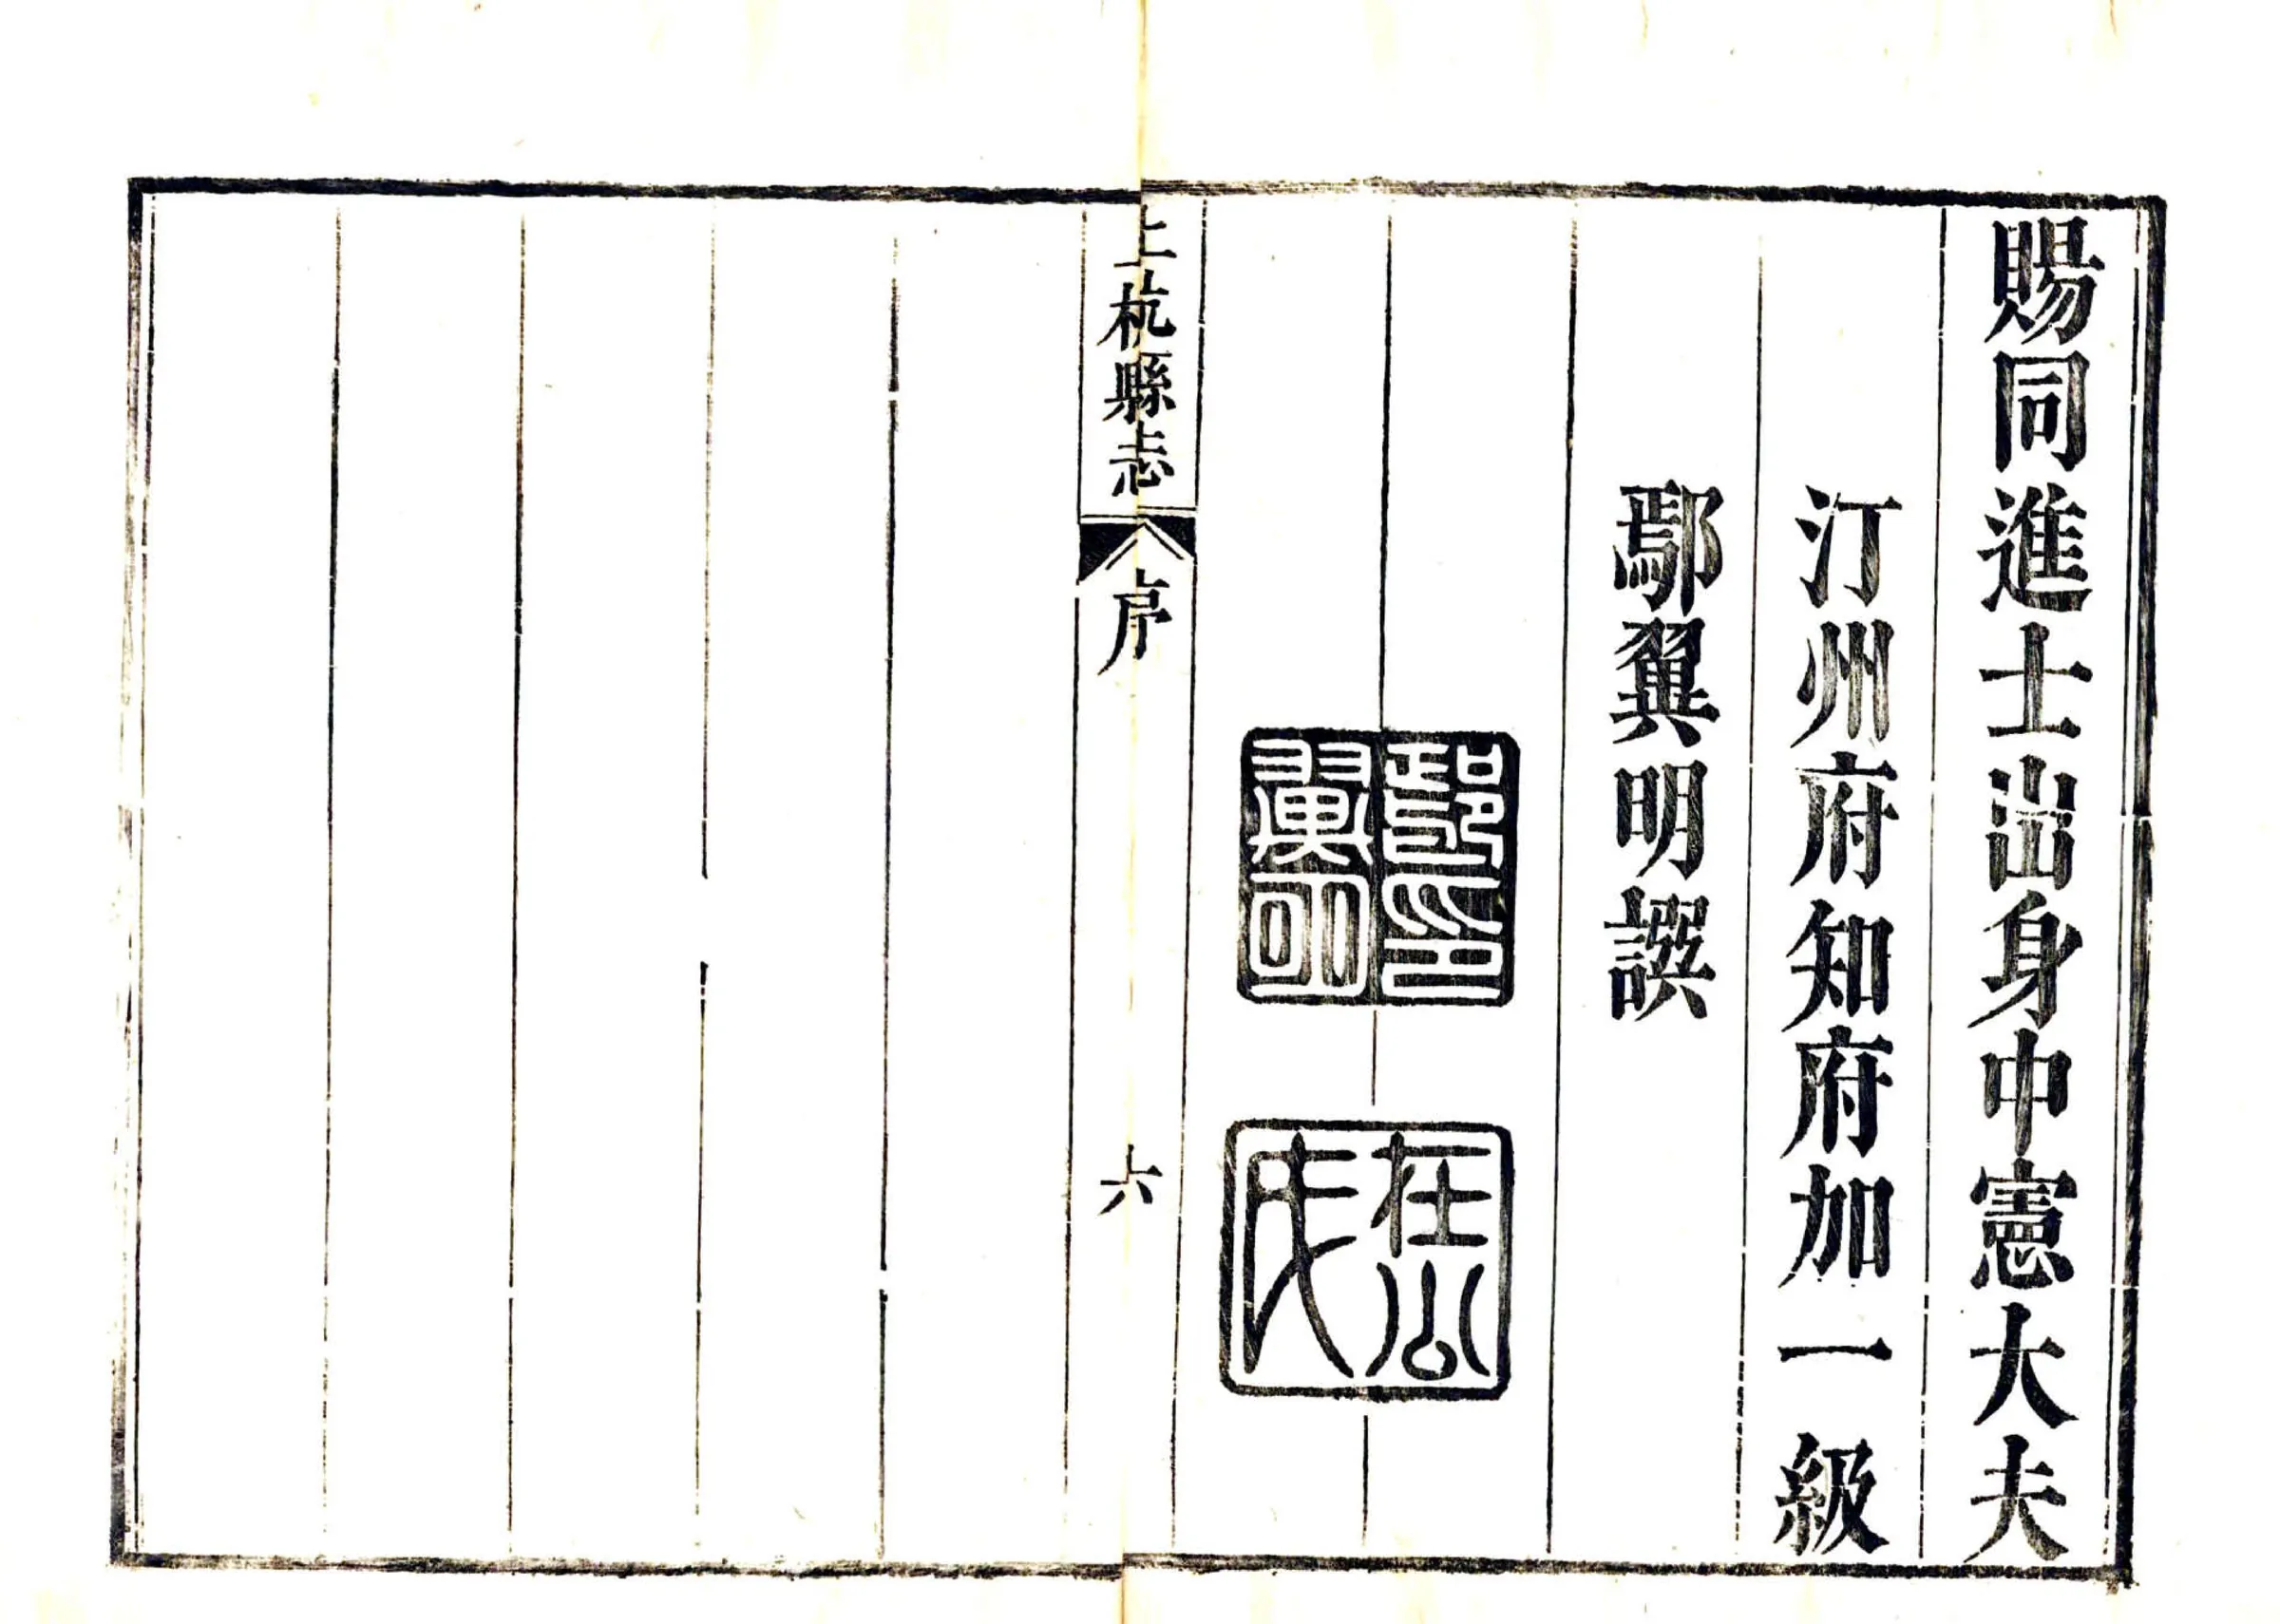 賜同進士出身中憲大夫
汀州府知府加一級
鄢翼明譔
鄢印
翼明
在公
上杭縣志
序
六